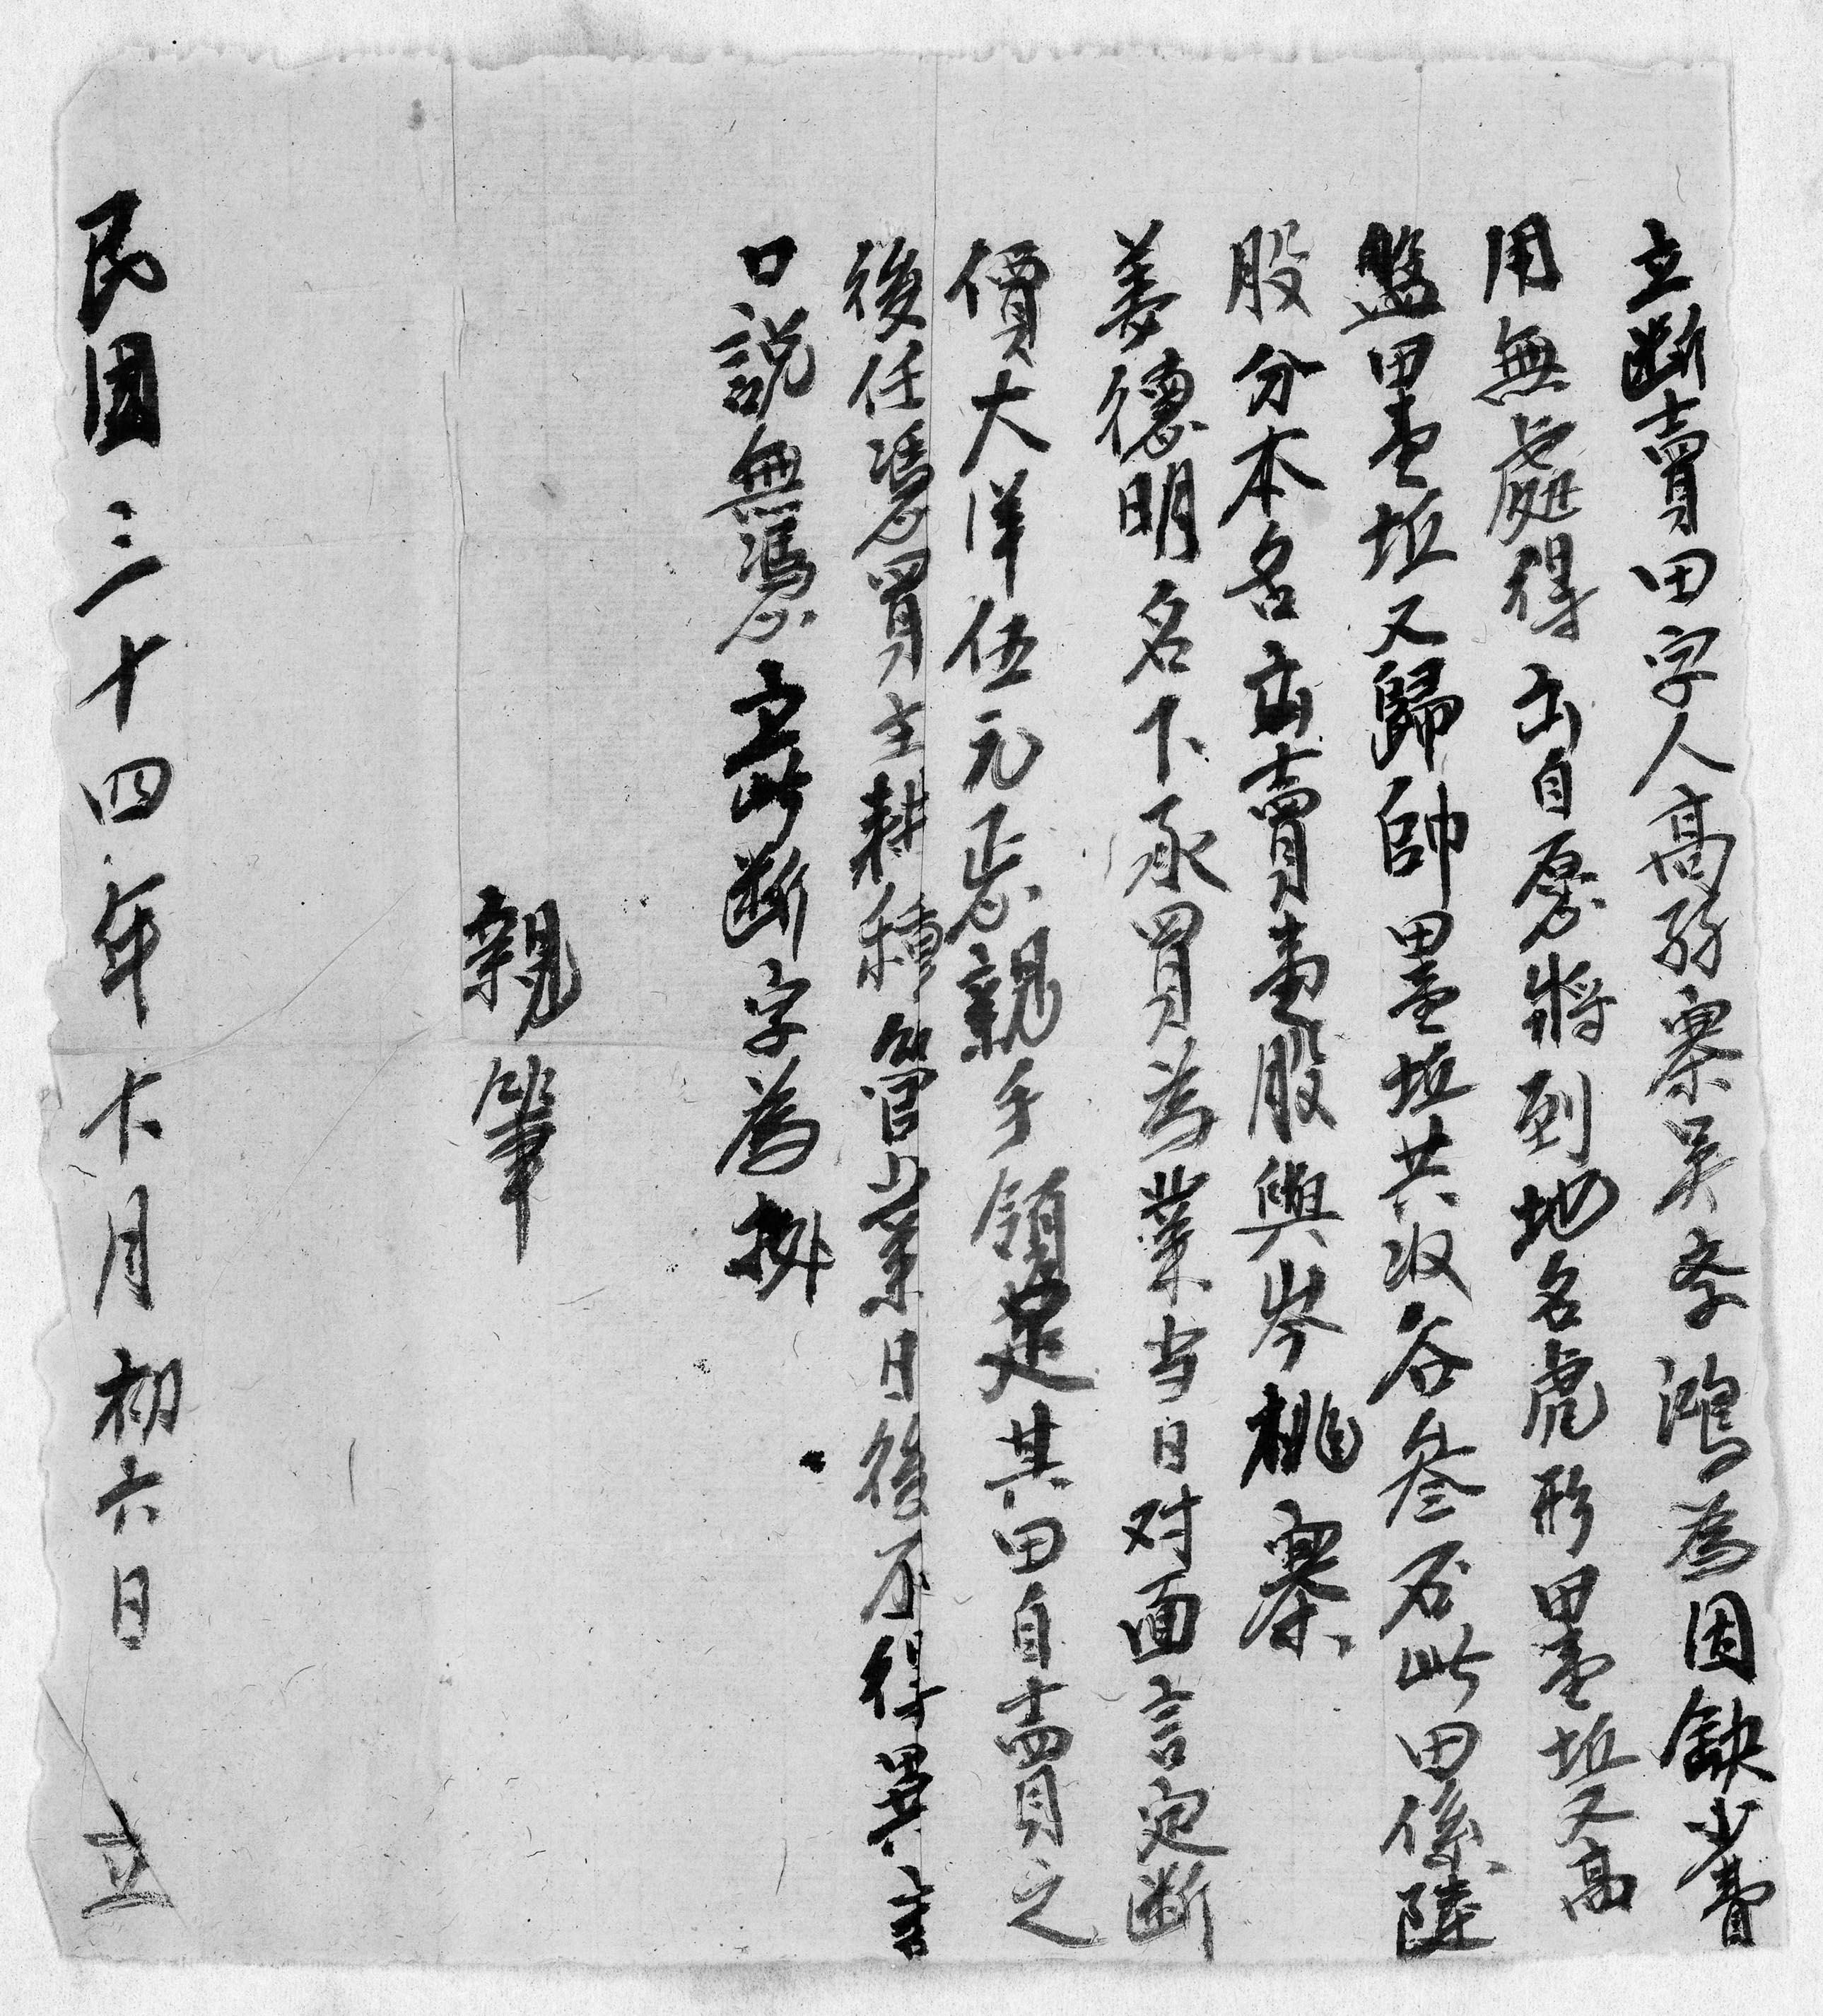 立斷賣田字人髙孖寨吴李鴻為因缺少費
用無處得出自愿將到地名虎形田壹坵又髙
盤田壹坵又歸帥田壹坵共收谷叁石此田係陸
股分本名出賣壹股與岑桃寨
姜德明名下承買為業当日对面言定斷
價大洋伍元正忘親手領足其田自賣之
後任憑買主耕種管業日後不得異言
口說無憑立此斷字為據
親筆
民國三十四年十月初六日 立